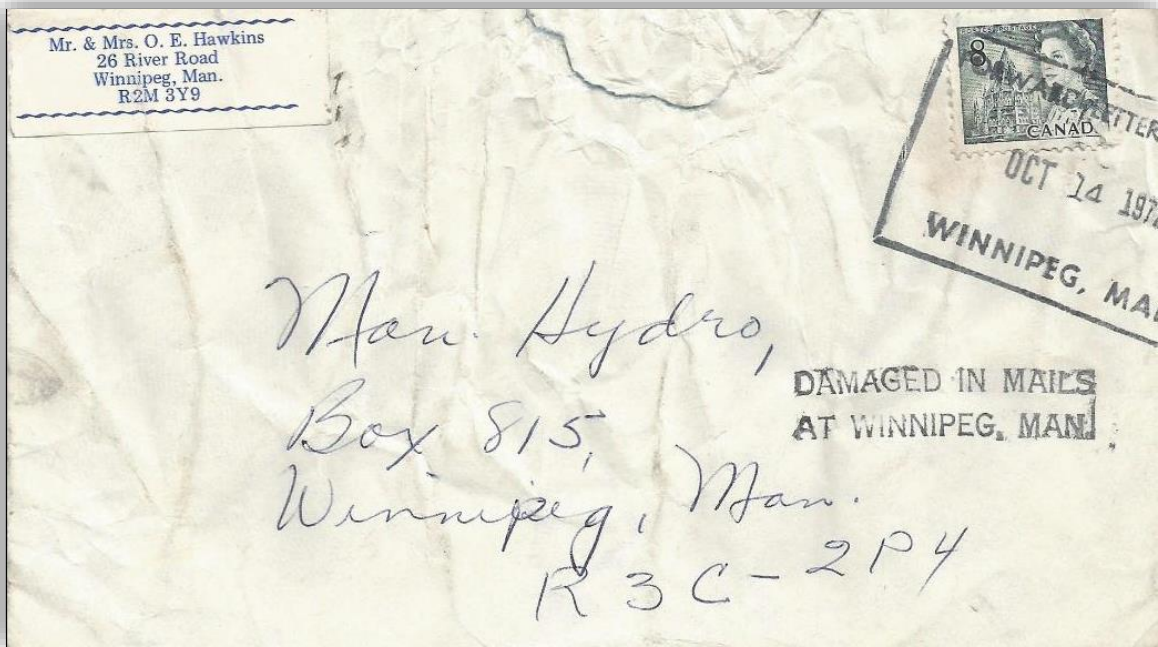 Mr. & Mrs. O. E. Hawkins
26 River Road
Winnipeg, Man.
R2M 3Y9
8
POSTES POSTAGE
CANAD
OCT 14 197
WINNIPEG, MA
Man. Hydro,
Box 815,
Winnipeg, Man.
R3C-2P4
DAMAGED IN MAILS
AT WINNIPEG, MAN.